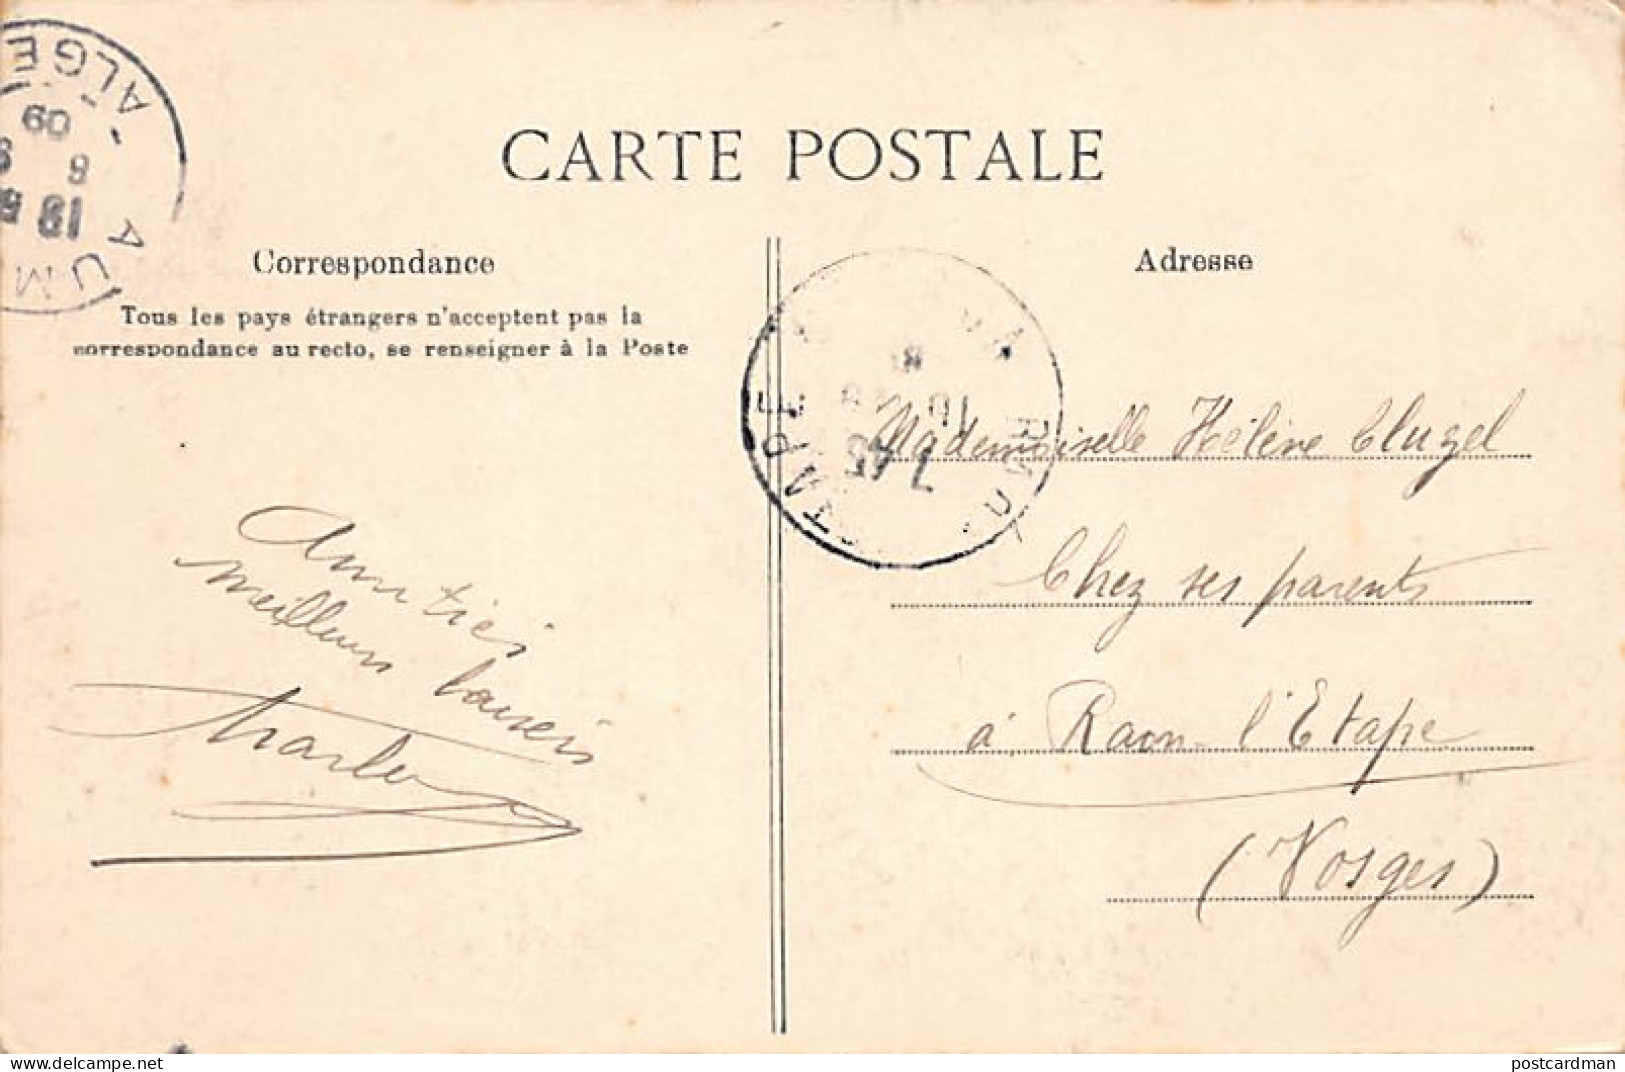 CARTE POSTALE
Correspondance
Tous les pays étrangers n'acceptent pas la
correspondance au recto, se renseigner à la Poste
Amitiés
meilleurs baisers
Charles
Adresse
Mademoiselle Hélène Clugel
Chez ses parents
à Raon-l'Etape
(Vosges)
AUM - ALGE
09
7 45
delcampe.net
postcardman